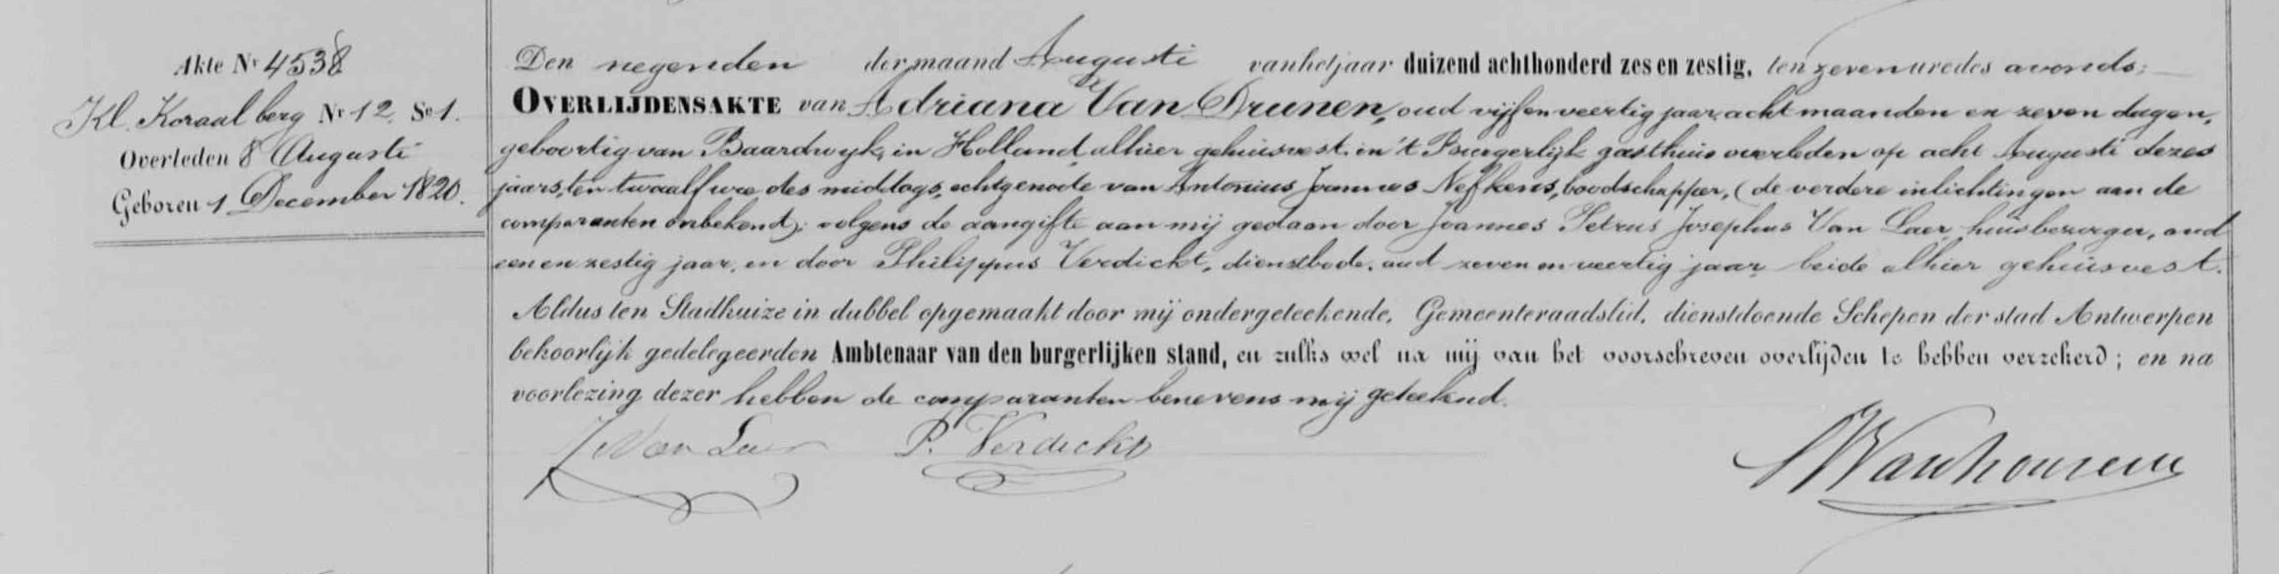 Akte Nr 4538
Kl. Koraalberg Nr 12. Se 1.
Overleden 8 Augusti
Geboren 1 December 1820.
Den negenden der maand Augusti van het jaar duizend achthonderd zes en zestig, ten zeven ure des avonds;
OVERLIJDENSAKTE van Adriana Van Drunen, oud vijf en veertig jaar, acht maanden en zeven dagen,
geboortig van Baardwyk, in Holland, alhier gehuisvest, in 't Burgerlijk gasthuis overleden op acht Augusti dezes
jaars, ten twaalf ure des middags, echtgenoote van Antonius Joannes Nefkens, boodschapper, (de verdere inlichtingen aan de
comparanten onbekend); volgens de aangifte aan mij gedaan door Joannes Petrus Josephus Van Laer, huisbezorger, oud
een en zestig jaar, en door Philippus Verdickt, dienstbode, oud zeven en veertig jaar, beide alhier gehuisvest.
Aldus ten Stadhuize in dubbel opgemaakt door mij ondergeteekende, Gemeenteraadslid, dienstdoende Schepen der stad Antwerpen
behoorlijk gedelegeerden Ambtenaar van den burgerlijken stand, en zulks wel na mij van het voorschreven overlijden te hebben verzekerd; en na
voorlezing dezer hebben de comparanten benevens mij geteekend.
Van Laer P. Verdickt